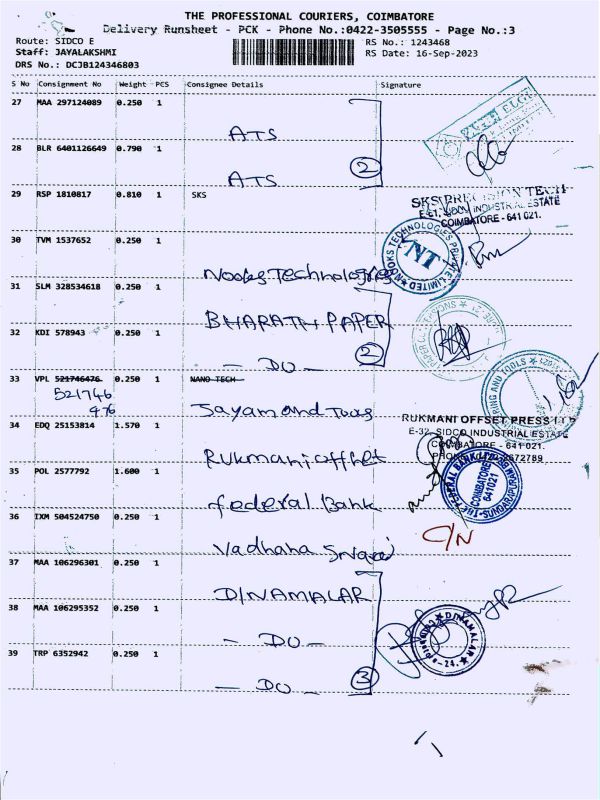 THE PROFESSIONAL COURIERS, COIMBATORE
Delivery Runsheet - PCK - Phone No.:0422-3505555 - Page No.:3
Route: SIDCO E
Staff: JAYALAKSHMI
DRS No.: DCJB124346803
RS No.: 1243468
RS Date: 16-Sep-2023
S No Consignment No Weight PCS Consignee Details Signature
27 MAA 297124089 0.250 1
ATS
28 BLR 6401126649 0.790 1
ATS
2
29 RSP 1810817 0.810 1 SKS
SKS PRECISION TECH
E-61, SIDCO INDUSTRIAL ESTATE
COIMBATORE - 641 021.
30 TVM 1537652 0.250 1
Nooks Technologies
NOOKS TECHNOLOGIES PRIVATE LIMITED
NT
31 SLM 328534618 0.250 1
BHARATH PAPER
32 KDI 578943 0.250 1
- DO -
2
33 VPL 521746476 0.250 1 NANO TECH
521746
476
Jayam and Tools
AND TOOLS
34 EDQ 25153814 1.570 1
Rukmani offset
RUKMANI OFFSET PRESS
E-32, SIDCO INDUSTRIAL ESTATE
COIMBATORE - 641 021.
35 POL 2577792 1.600 1
federal Bank
THE FEDERAL BANK
COIMBATORE
641021
36 IXM 504524750 0.250 1
Vadhana
C/N
37 MAA 106296301 0.250 1
DINAMALAR
38 MAA 106295352 0.250 1
- DO -
DINAMALAR
39 TRP 6352942 0.250 1
- DO -
3